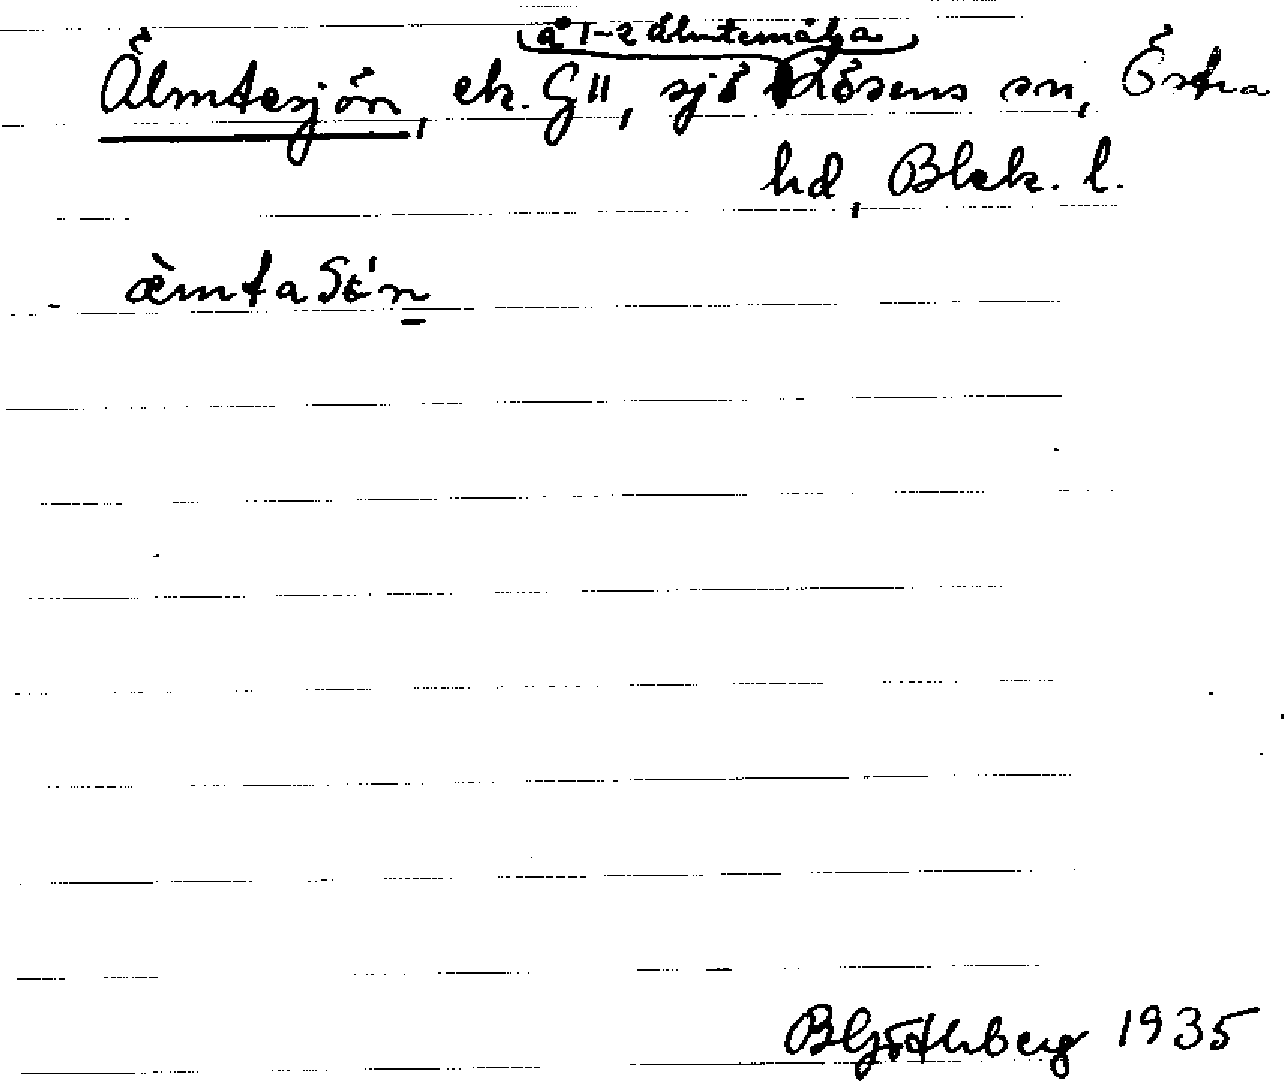 å 1-2 Älmtemåla
Älmtesjön, ek. G II, sjö Lösens sn, Östra
hd, Blek. l.
æ̀mtaSɛ́n
BGöthberg 1935